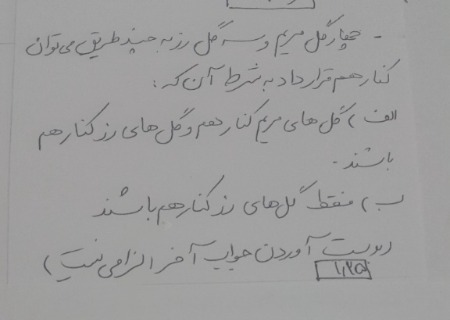 - چهار گل مریم و سه گل رز به چند طریق می‌توان
کنار هم قرار داد به شرط آن که :
الف) گل‌های مریم کنار هم و گل‌های رز کنار هم
باشند .
ب) فقط گل‌های رز کنار هم باشند
(بدست آوردن جواب آخر الزامی نیست)
۱,۲۵